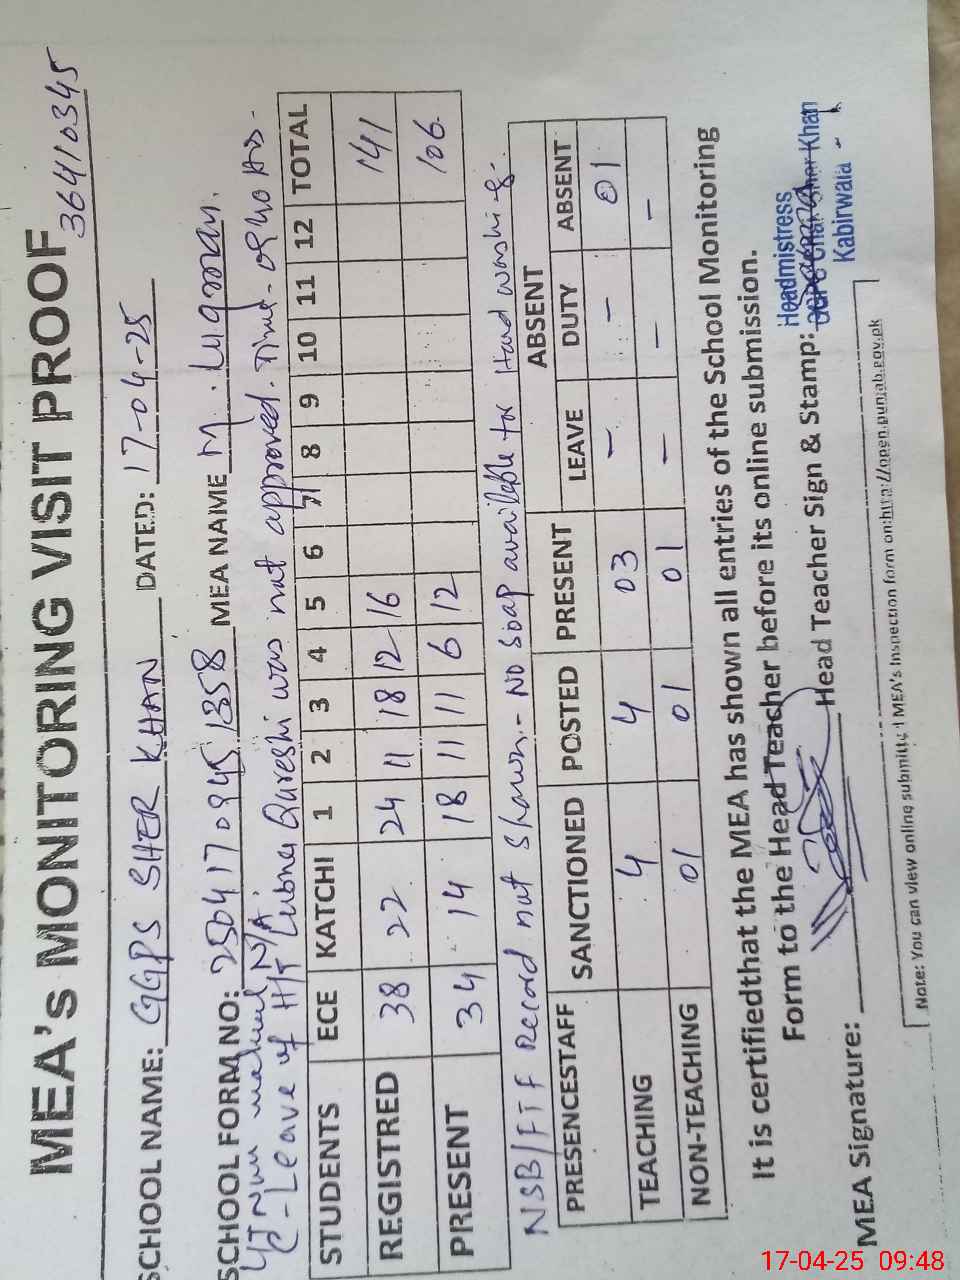 MEA's MONITORING VISIT PROOF
36410345
SCHOOL NAME: GGPS SHER KHAN DATED: 17-04-25
SCHOOL FORM NO: 25041709451358 MEA NAME M. Luqman.
N/A
C-Leave of H/T Lubna Qureshi was not approved. Time
STUDENTS ECE KATCHI 1 2 3 4 5 6 7 8 9 10 11 12 TOTAL
REGISTRED 38 22 24 11 18 12 16 141
PRESENT 34 14 18 11 11 6 12 106
NSB/FTF Record not Shawn.- No Soap available for Hand washing.
PRESENCESTAFF SANCTIONED POSTED PRESENT ABSENT
LEAVE DUTY ABSENT
TEACHING 4 4 03 - - 01
NON-TEACHING 01 01 01 - - -
It is certifiedthat the MEA has shown all entries of the School Monitoring
Form to the Head Teacher before its online submission.
Headmistress
Sher Khan
Kabirwala
MEA Signature: Head Teacher Sign & Stamp:
Note: You can view online submitted MEA's Inspection form on:http://open.punjab.gov.pk
17-04-25 09:48